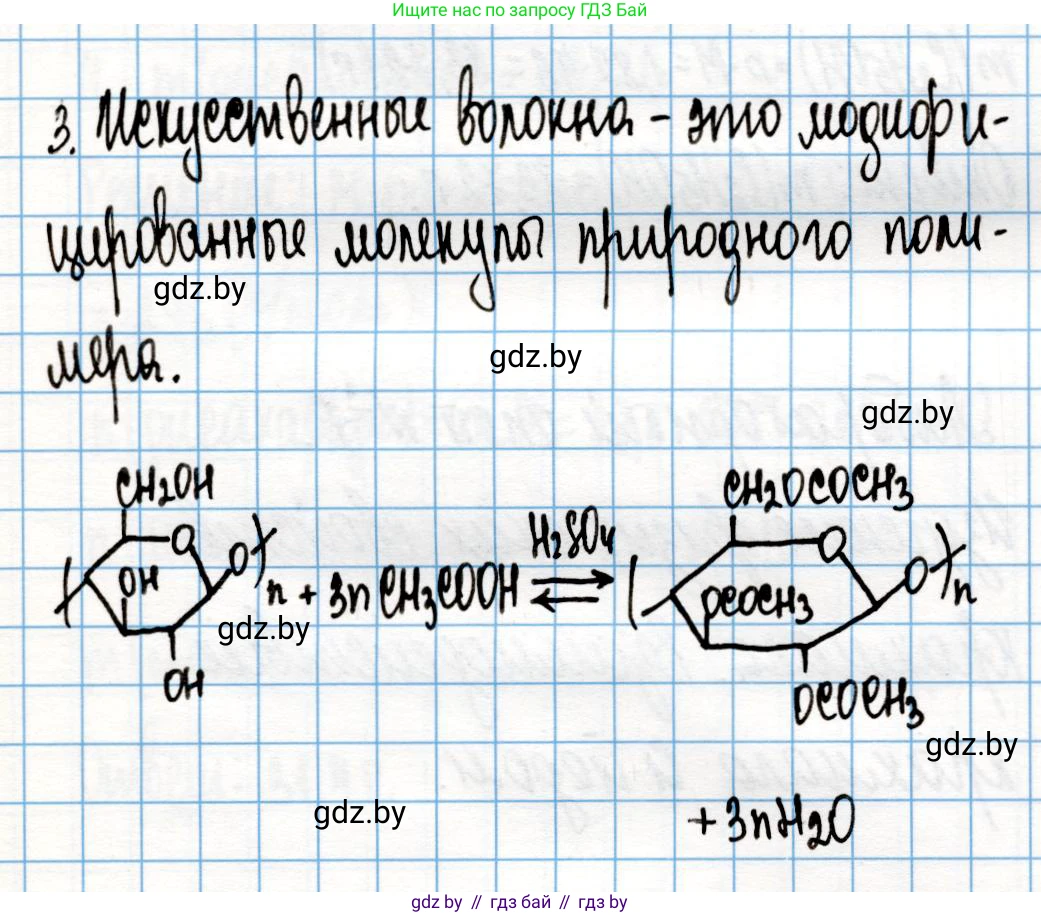 Ищите нас по запросу ГДЗ Бай
3. Искусственные волокна - это модифи-
цированные молекулы природного поли-
gdz.by
мера.
gdz.by
gdz.by
CH2OH
CH2OCOCH3
O
OH
O
n + 3n CH3COOH
H2SO4
O
OCOCH3
O
n
gdz.by
OH
OCOCH3
gdz.by
gdz.by
+ 3nH2O
gdz.by // гдз бай // гдз by